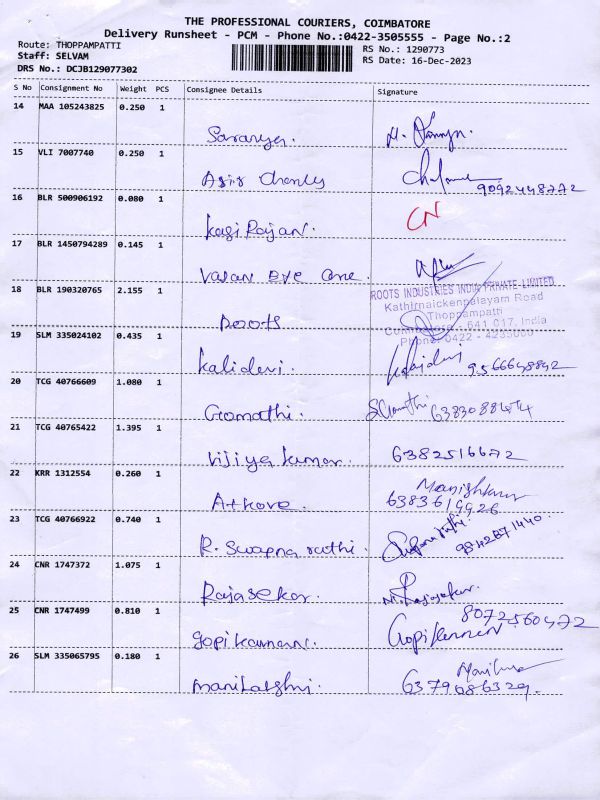 THE PROFESSIONAL COURIERS, COIMBATORE
Delivery Runsheet - PCM - Phone No.:0422-3505555 - Page No.:2
Route: THOPPAMPATTI RS No.: 1290773
Staff: SELVAM RS Date: 16-Dec-2023
DRS No.: DCJB129077302
S No Consignment No Weight PCS Consignee Details Signature
14 MAA 105243825 0.250 1
Saranya.
15 VLI 7007740 0.250 1
9092448772
16 BLR 500906192 0.080 1
CN
Kasi Rajan.
17 BLR 1450794289 0.145 1
Vasan Eye Care.
18 BLR 190320765 2.155 1
ROOTS INDUSTRIES INDIA PRIVATE LIMITED
Kathirnaickenpalayam Road
Thoppampatti
Coimbatore - 641 017, India
Roots
19 SLM 335024102 0.435 1
Kalidevi. 9566648842
20 TCG 40766609 1.080 1
Gomathi. SGomathi 6383088474
21 TCG 40765422 1.395 1
Vijiya kumar. 6382516672
22 KRR 1312554 0.260 1
6383619926
23 TCG 40766922 0.740 1
R. Swapna ruthi. 9842871440.
24 CNR 1747372 1.075 1
Rajasekar.
25 CNR 1747499 0.810 1
8072560472
gopikannan. Gopikannan
26 SLM 335065795 0.180 1
manilakshmi. 6379686329.